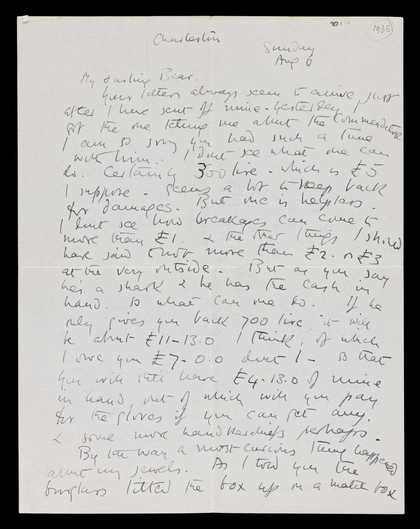 [1935]
Charleston
Sunday
Aug
My darling Bear.
Your letters always seem to arrive just
after I have sent off mine. Yesterday
got the one telling me about the Commendatore
I am so sorry you had such a time
with him. I dont see what one can
do. Certainly 300 lire - which is £5
I suppose - seems a lot to keep back
for damages. But one is helpless.
I dont see how breakages can come to
more than £1. & the other things I should
have said not more than £2. or £3
at the very outside. But as you say
he's a shark & he has the cash in
hand. so what can one do. If he
only gives you back 700 lire, it will
be about £11-13.0 I think, of which
I owe you £7.0.0 dont I - so that
you will still have £4.13.0 of mine
in hand, out of which will you pay
for the gloves if you can get any.
& some more handkerchiefs perhaps.
By the way a most curious thing happened
about my jewels. As I told you the
burglars tilted the box up on a match box